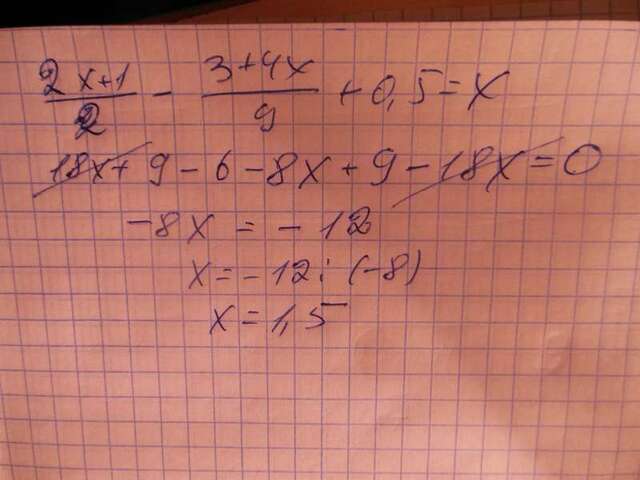 (2x+1)/2 - (3+4x)/9 + 0,5 = x
18x + 9 - 6 - 8x + 9 - 18x = 0
-8x = - 12
x = - 12 : (-8)
x = 1,5